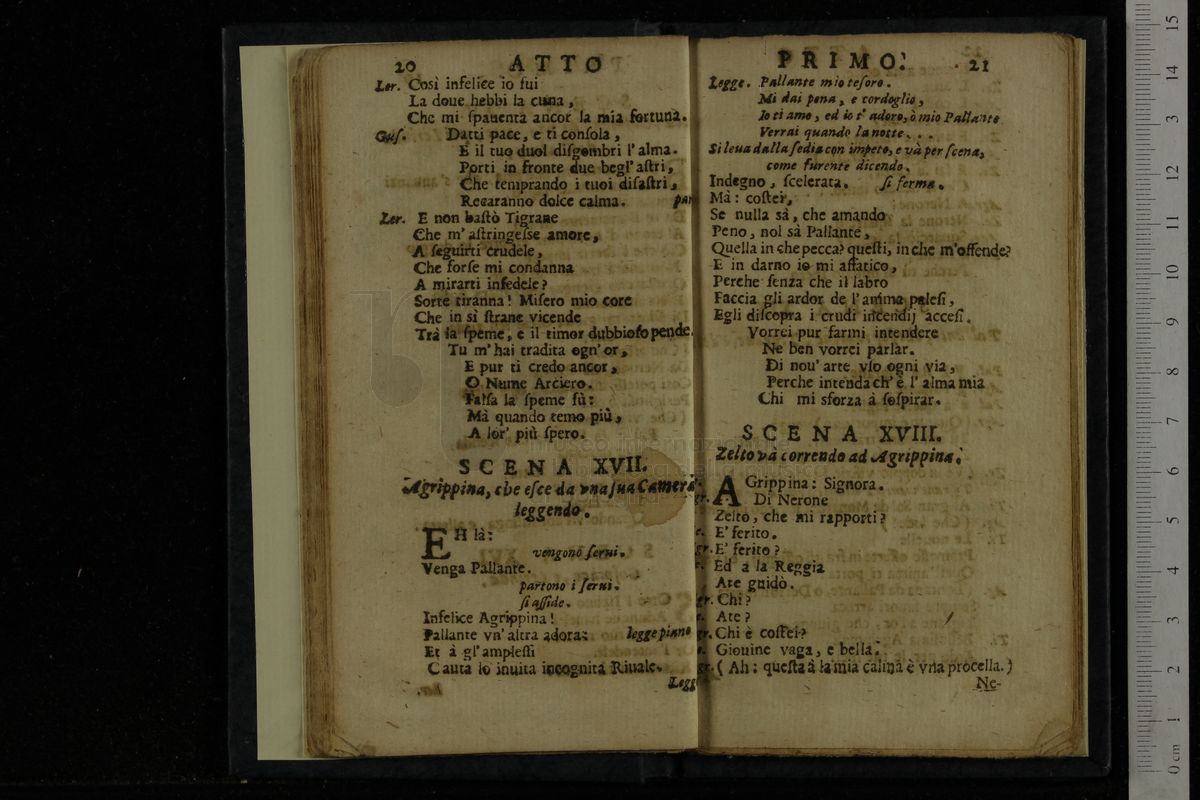 20 ATTO
Ler. Così infelice io fui
La doue hebbi la cuna,
Che mi ſpauenta ancor la mia fortuna.
Guſ. Datti pace, e ti conſola,
E il tuo duol diſgombri l'alma.
Porti in fronte due begl'aſtri,
Che temprando i tuoi diſaſtri,
Recaranno dolce calma. par
Ler. E non baſtò Tigrane
Che m'aſtringeſse amore,
A ſeguirti crudele,
Che forſe mi condanna
A mirarti infedele?
Sorte tiranna! Miſero mio core
Che in sì ſtrane vicende
Trà la ſpeme, e il timor dubbioſo pende.
Tu m'hai tradita ogn'or,
E pur ti credo ancor,
O Nume Arciero.
Falſa la ſpeme fù:
Mà quando temo più,
A lor' più ſpero.
SCENA XVII.
Agrippina, che eſce da vna ſua Camera
leggendo.
EH là:
vengono ſerui.
Venga Pallante.
partono i ſerui.
ſi aſſide.
Infelice Agrippina!
Pallante vn'altra adora: legge piano
Et à gl'ampleſſi
Cauta lo inuita incognita Riuale.
Legg
PRIMO. 21
Legge. Pallante mio teſoro.
Mi dai pena, e cordoglio,
Io ti amo, ed io t'adoro, ò mio Pallante
Verrai quando la notte...
Si leua dalla ſedia con impeto, e và per ſcena,
come furente dicendo.
Indegno, ſcelerata. ſi ferma.
Mà: coſtei,
Se nulla sà, che amando
Peno, nol sà Pallante,
Quella in che pecca? queſti, in che m'offende?
E in darno io mi affatico,
Perche ſenza che il labro
Faccia gli ardor de l'anima paleſi,
Egli diſcopra i crudi incendij acceſi.
Vorrei pur farmi intendere
Ne ben vorrei parlar.
Di nou'arte vſo ogni via,
Perche intenda ch'è l'alma mia
Chi mi sforza à ſoſpirar.
SCENA XVIII.
Zelto và correndo ad Agrippina.
AGrippina: Signora.
gr. Di Nerone
Zelto, che mi rapporti?
e. E' ferito.
gr. E' ferito?
e. Ed a la Reggia
Ate guidò.
gr. Chi?
e. Ate?
gr. Chi è coſtei?
e. Giouine vaga, e bella.
gr. (Ah: queſta à la mia calma è vna procella.)
Ne-